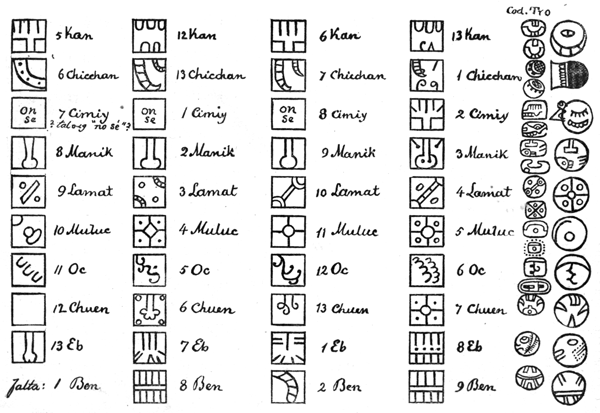 Cod. Tro
5 Kan 12 Kan 6 Kan 13 Kan
6 Chicchan 13 Chicchan 7 Chicchan 1 Chicchan
on on on
se se se
7 Cimiy 1 Cimiy 8 Cimiy 2 Cimiy
"no sé"?
8 Manik 2 Manik 9 Manik 3 Manik
9 Lamat 3 Lamat 10 Lamat 4 Lamat
10 Muluc 4 Muluc 11 Muluc 5 Muluc
11 Oc 5 Oc 12 Oc 6 Oc
12 Chuen 6 Chuen 13 Chuen 7 Chuen
13 Eb 7 Eb 1 Eb 8 Eb
Falta: 1 Ben 8 Ben 2 Ben 9 Ben